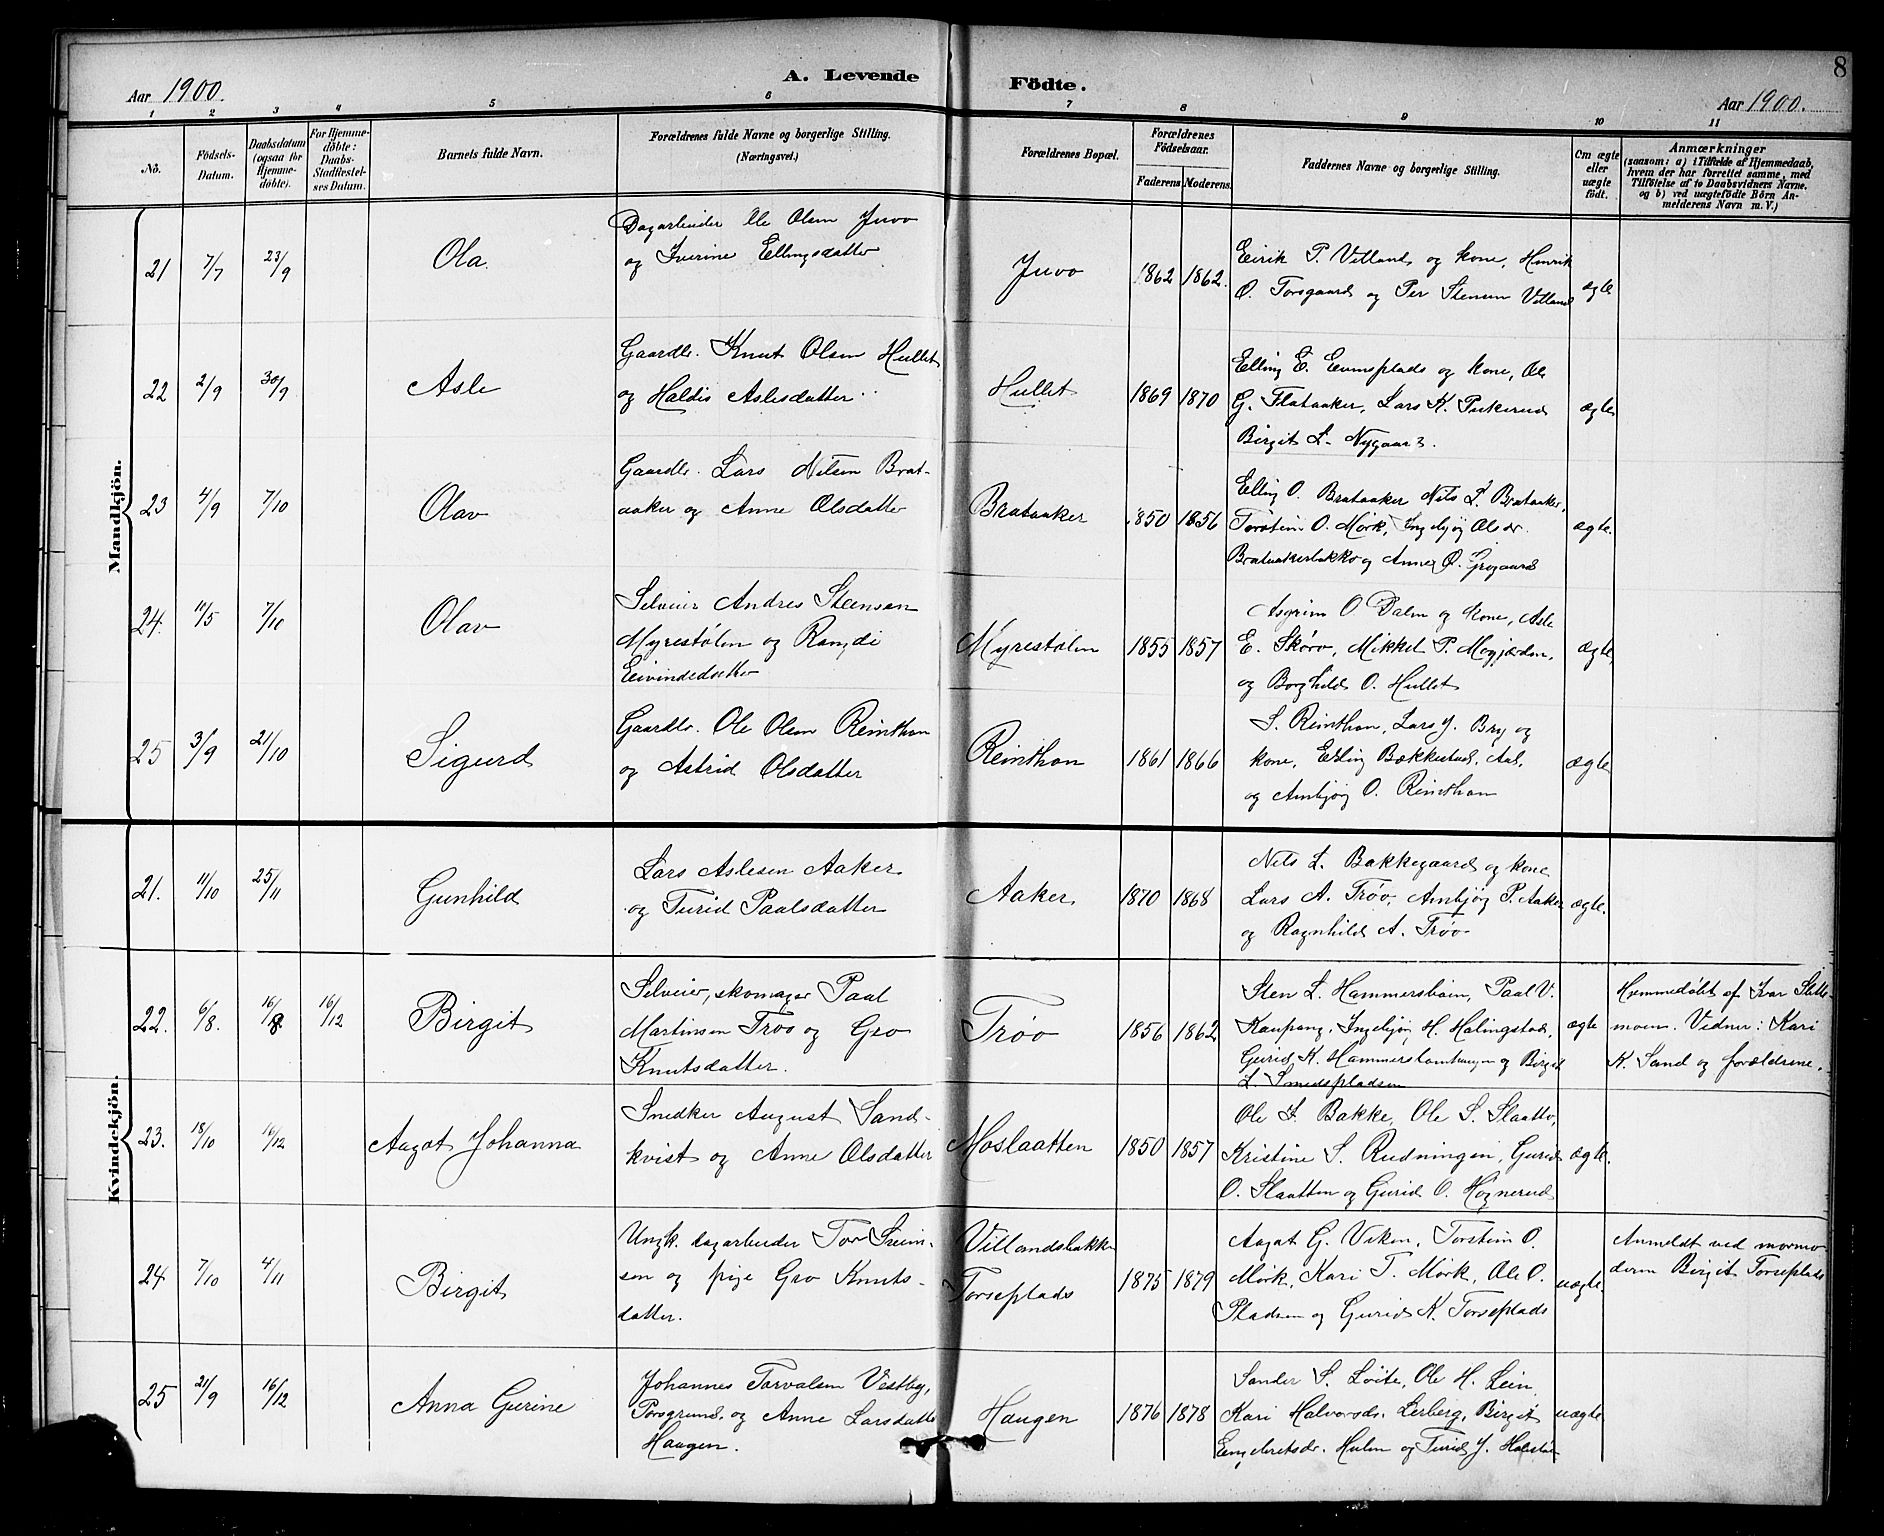 8
A. Levende Födte.
Aar 1900.
Aar 1900.
1 2 3 4 5 6 7 8 9 10 11
No.
Födsels-
Datum.
Daabsdatum
(ogsaa for
Hjemme-
døbte).
For Hjemme-
døbte:
Daabs-
Stadfestel-
ses Datum.
Barnets fulde Navn.
Forældrenes fulde Navne og borgerlige Stilling.
(Næringsvei.)
Forældrenes Bopæl.
Forældrenes
Födselsaar.
Faderens. Moderens.
Faddernes Navne og borgerlige Stilling.
Om ægte
eller
uægte
født.
Anmærkninger
(saasom: a) i Tilfælde af Hjemmedaab,
hvem der har forrettet samme, med
Tilföielse af to Daabsvidners Navne.
og b) ved uægtefödte Börn An-
melderens Navn m. V.)
Mandkjön.
21 7/7 23/9 Ola
Dagarbeider Ole Olsen Juvo
og Iverine Ellingsdatter
Juvo 1862 1862.
Eirik P. Villand og kone, Henrik
O. Torsgaard og Per Stensen Villand
ægte
22 2/9 30/9 Asle
Gaardbr. Knut Olsen Hullet
og Haldis Aslesdatter
Hullet 1869 1870
Elling E. Evensplads og kone, Ole
G. Flataaker, Lars K. Pukerud
Birgit L. Nygaard.
ægte
23 4/9 7/10 Olav
Gaardbr. Lars Nilsen Brat-
aaker og Anne Olsdatter
Brataaker 1850 1856
Elling O. Brataaker Nils L. Brataaker,
Torstein O. Mørk, Ingebjøg Olsdr.
Brataakerbakko og Anne O. Grøgaard
ægte.
24. 11/5 7/10 Olav
Selveier Andres Steensen
Myrestølen og Randi
Eivindsdatter
Myrestølen 1855 1857
Asgrim O. Dalen og kone, Asle
E. Skøro, Mikkel P. Mogjerdn,
og Borghild O. Hullet
ægte,
25 3/9 21/10 Sigurd
Gaardbr. Ole Olsen Reinthon
og Astrid Olsdatter
Reinthon 1861 1866
S. Reinthon, Lars J. Bry og
kone, Elling Bækkestad, Aal,
og Ambjøg O. Reinthon
ægte
Kvindekjön.
21. 11/10 25/11 Gunhild
Lars Aslesen Aaker
og Turid Paalsdatter
Aaker 1870 1868
Nils L. Bakkegaard og kone
Lars A. Trøo, Ambjøg P. Aaker
og Ragnhild A. Trøo
ægte.
22. 6/8. 16/8. 16/12 Birgit
Selveier, skomager Paal
Martinsen Trøo og Gro
Knutsdatter.
Trøo 1856 1862
Sten L. Hammersbøen, Paal V.
Kaupang, Ingebjøg H. Halingstad,
Gurid K. Hammersbøenhaugen og Birgit
L. Smedspladsen
ægte
Hjemmedøbt af Ivar Slette-
moen. Vidner: Kari
K. Sand og forældrene.
23. 18/10 16/12 Aagot Johanna
Snedker August Sand-
kvist og Anne Olsdatter
Moslaatten 1850 1857
Ole I. Bakke, Ole S. Slaatto,
Kristine S. Rudningen, Gurid
O. Slaatten og Gurid O. Høgnerud
ægte.
24 7/10 4/11 Birgit
Ungk. dagarbeider Tor Svein-
sen og pige Gro Knuts-
datter.
Villandsbakke
Torseplads 1875 1879
Aagot G. Viken, Torstein O.
Mørk, Kari T. Mørk, Ole O.
Pladsen og Gurid K. Torseplads
uægte.
Anmeldt ved mormo-
deren Birgit Torseplads
25 21/9 16/12 Anna Gurine
Johannes Torvalsen Vestby,
Porsgrund, og Anne Larsdatter
Haugen.
Haugen 1876 1878
Sander S. Loite, Ole H. Lein
Kari Halvorsdr. Lerberg, Birgit
Engebretsdr. Hulen og Turid J.
uægte